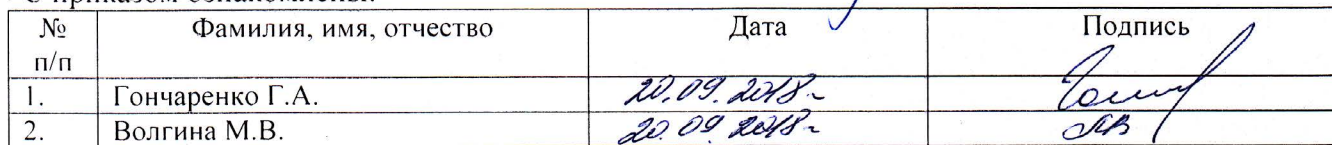 С приказом ознакомлены:
№ п/п Фамилия, имя, отчество Дата Подпись
1. Гончаренко Г.А. 20.09.2018г
2. Волгина М.В. 20.09.2018г